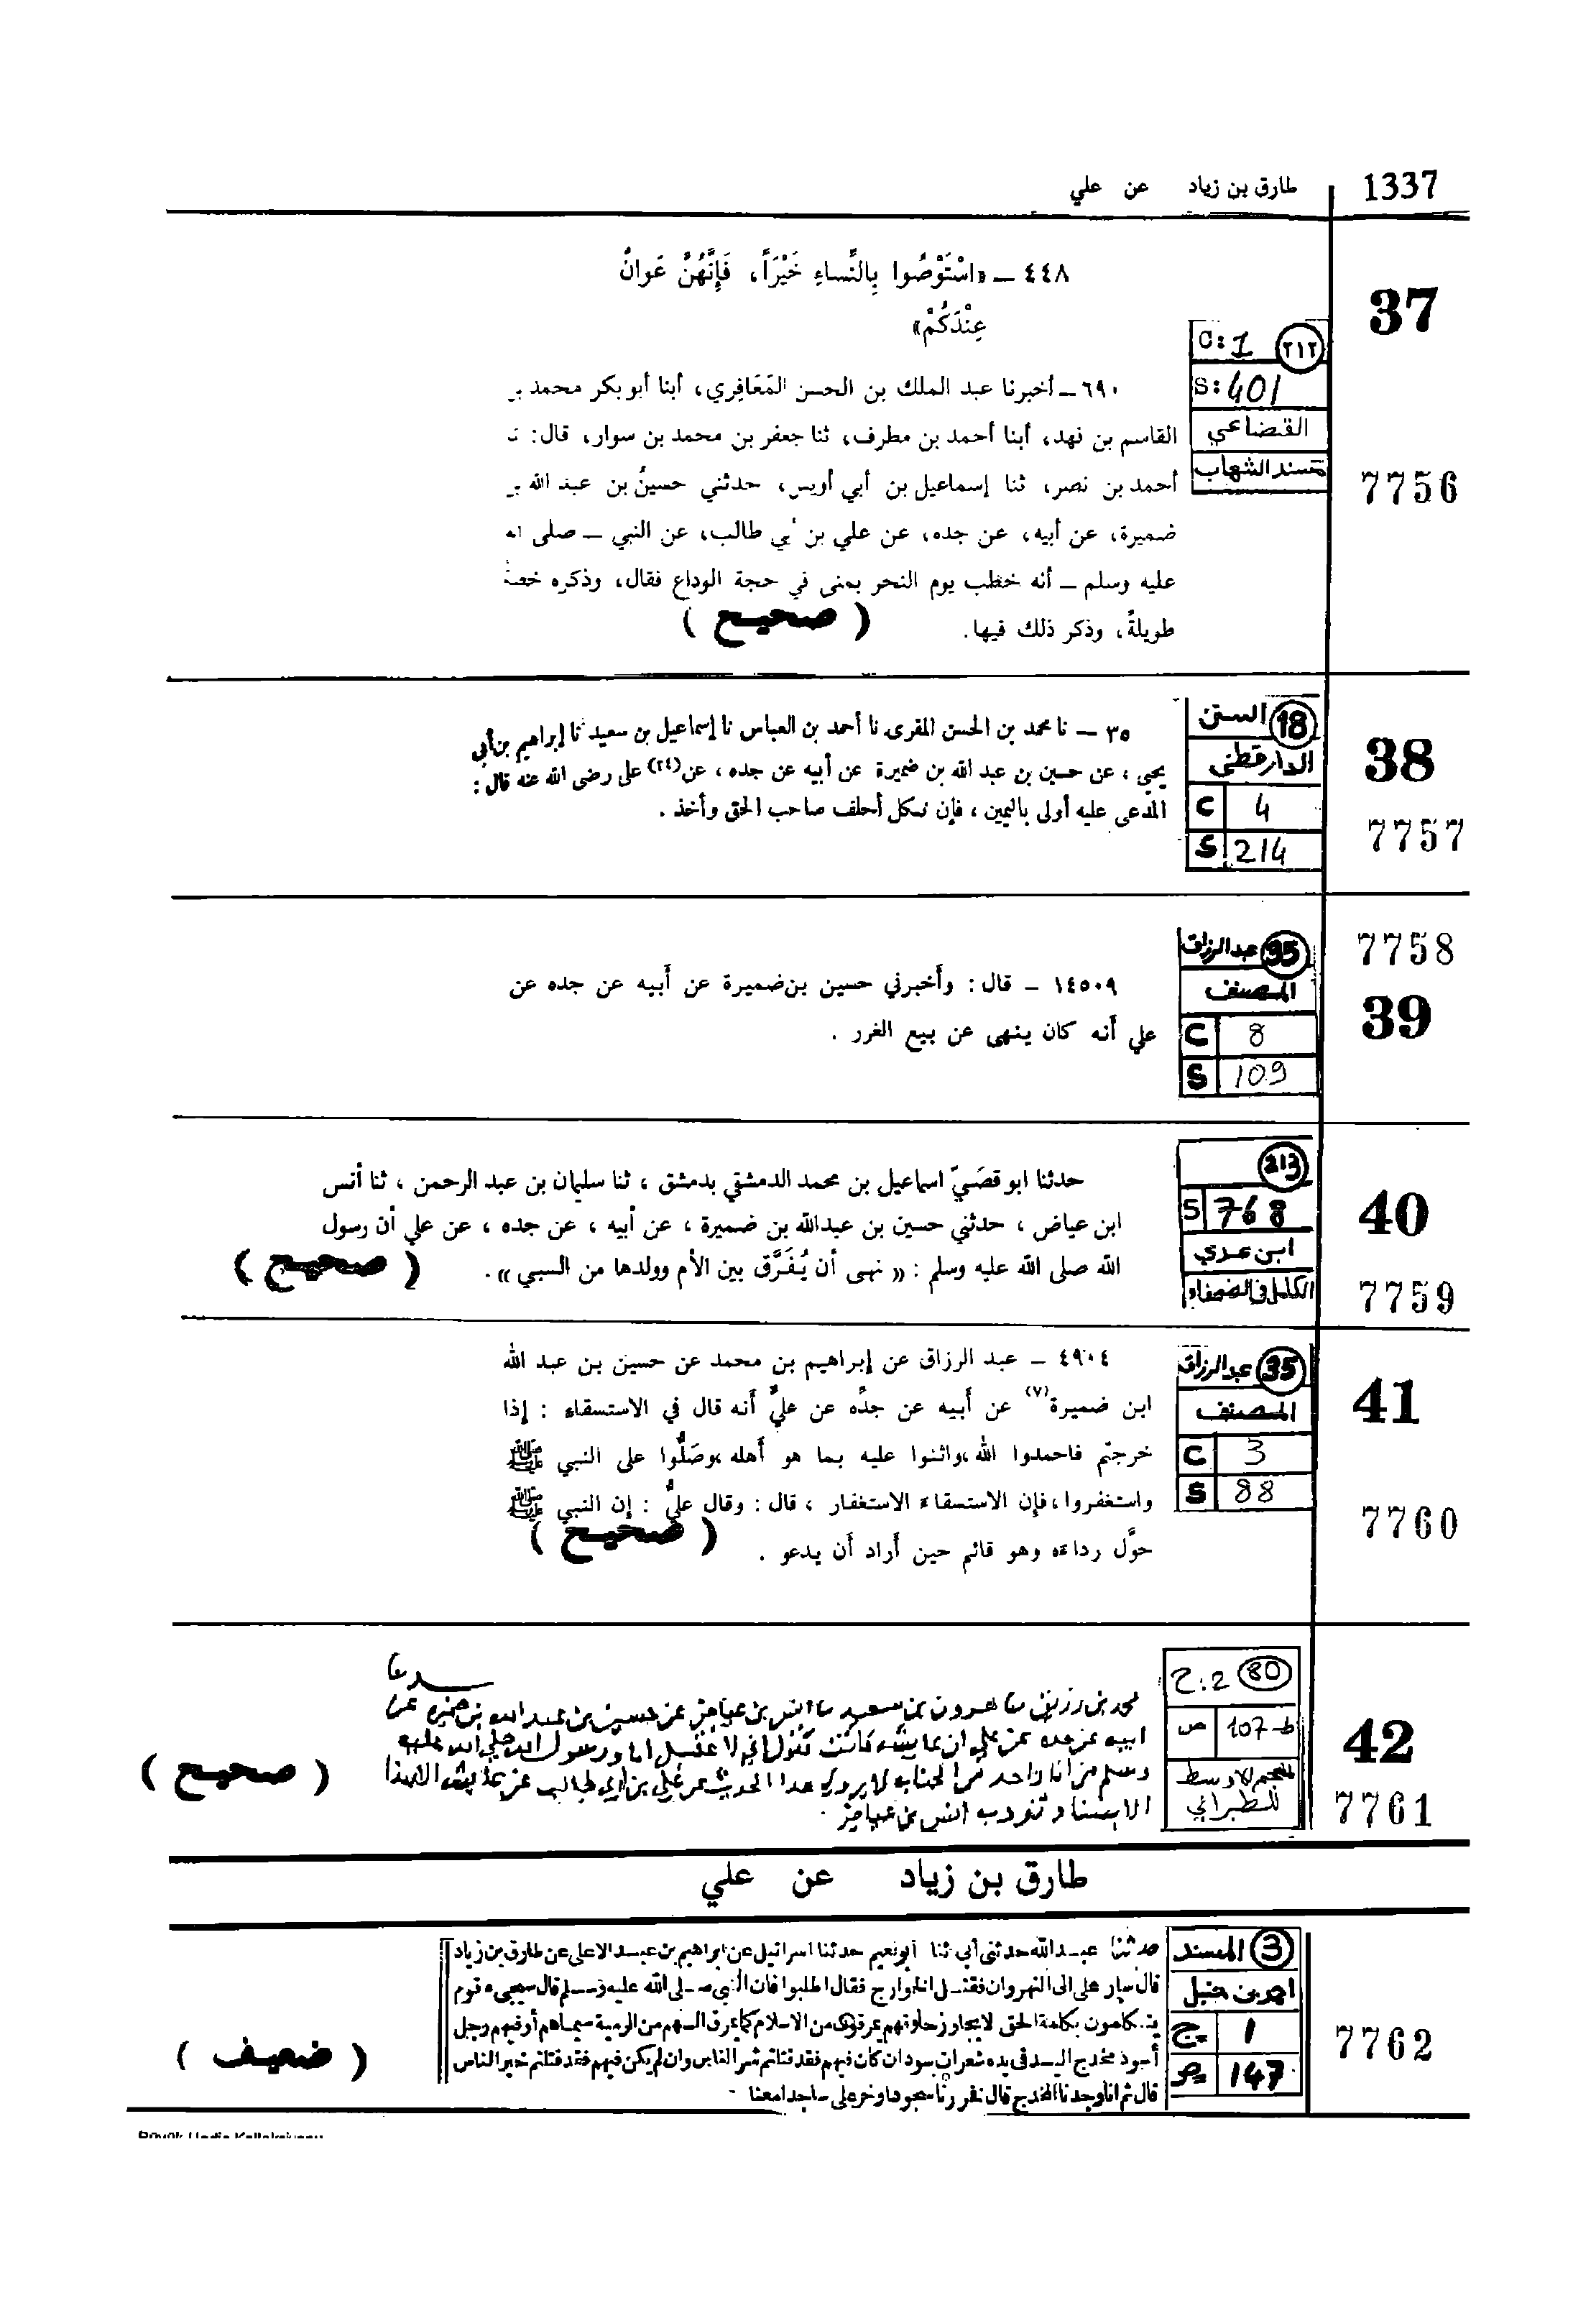 1337 طارق بن زياد عن علي
37
٤٤٨ ــ «اسْتَوْصُوا بِالنِّساءِ خَيْرَاً، فَإِنَّهُنَّ عَوانٌ
عِنْدَكُمْ»
C: 1 ٢١٢
S: 401
القضاعي
مسند الشهاب
7756
٦٩٠ ــ أخبرنا عبد الملك بن الحسن المَعَافِري، أبنا أبو بكر محمد
القاسم بن فهد، أبنا أحمد بن مطرف، ثنا جعفر بن محمد بن سوار، قال:
أحمد بن نصر، ثنا إسماعيل بن أبي أويس، حدثني حسينُ بن عبد الله
ضميرة، عن أبيه، عن جده، عن علي بن أبي طالب، عن النبي ــ صلى
عليه وسلم ــ أنه خطب يوم النحر بمنى في حجة الوداع فقال، وذكره
طويلةً، وذكر ذلك فيها.
( صحيح )
38
السنن 18
الدارقطني
C 4
S 214
7757
٣٥ ــ نا محمد بن الحسن المقرى نا أحمد بن العباس نا إسماعيل بن سعيد نا إبراهيم بن أبي
يحيى ، عن حسين بن عبد الله بن ضميرة عن أبيه عن جده ، عن (٢٤) على رضى الله عنه قال :
المدعى عليه أولى باليمين ، فإن نكل أحلف صاحب الحق وأخذ .
7758
39
عبد الرزاق 35
المصنف
C 8
S 109
١٤٥٠٩ ــ قال : وأخبرني حسين بن ضميرة عن أبيه عن جده عن
علي أنه كان ينهى عن بيع الغرر .
40
213
S 768
ابن عدي
الكامل في الضعفاء
7759
حدثنا ابو قصَيّ اسماعيل بن محمد الدمشقي بدمشق ، ثنا سليمان بن عبد الرحمن ، ثنا أنس
ابن عياض ، حدثني حسين بن عبدالله بن ضميرة ، عن أبيه ، عن جده ، عن علي أن رسول
الله صلى الله عليه وسلم : « نهى أن يُفَرَّق بين الأم وولدها من السبي ».
( صحيح )
41
عبد الرزاق 35
المصنف
C 3
S 88
7760
٤٩٠٤ ــ عبد الرزاق عن إبراهيم بن محمد عن حسين بن عبد الله
ابن ضميرة(٧) عن أبيه عن جدّه عن عليّ أنه قال في الاستسقاء : إذا
خرجتم فاحمدوا الله ، واثنوا عليه بما هو أهله ، وصَلُّوا على النبي ﷺ
واستغفروا ، فإن الاستسقاء الاستغفار ، قال : وقال عليّ : إن النبي ﷺ
حوَّل رداءه وهو قائم حين أراد أن يدعو .
( صحيح )
42
ج: 2 80
ص 107-ط
المعجم الاوسط
للطبراني
7761
محمد بن رزيق نا هرون بن سعيد نا انس بن عياض عن حسين بن عبد الله بن ضميره عن
ابيه عن جده عن علي ان عايشه كانت تقول اني لا غتسل انا ورسول الله صلي الله عليه
وسلم من انا واحد من الجنابه لا يروي هذا الحديث عن علي بن ابي طالب عن عايشه الا بهذا
الاسناد تفرد به انس بن عياض .
( صحيح )
طارق بن زياد عن علي
المسند 3
احمد بن حنبل
ج 1
ص 147
7762
حدثنا عبد الله حدثنى أبى ثنا أبو نعيم حدثنا اسرائيل عن ابراهيم بن عبد الاعلى عن طارق بن زياد
قال سار على الى النهروان فقتل الخوارج فقال اطلبوا فان النبى صلى الله عليه وسلم قال سيجىء قوم
يتكلمون بكلمة الحق لا يجاوز حلوقهم يمرقون من الاسلام كما يمرق السهم من الرمية سيماهم أو فيهم رجل
أسود مخدج اليد فى يده شعرات سود ان كان فيهم فقد قتلتم شر الناس وان لم يكن فيهم فقد قتلتم خير الناس
قال ثم انا وجدنا المخدج قال نفررنا سجودا وخر على ساجدا معنا
( ضعيف )